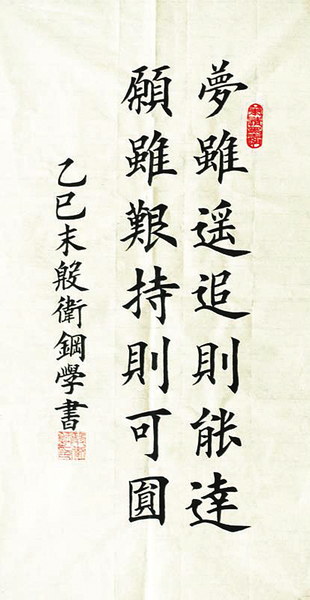 夢雖遥追則能達
願雖艱持則可圓
乙巳末殷衛鋼學書